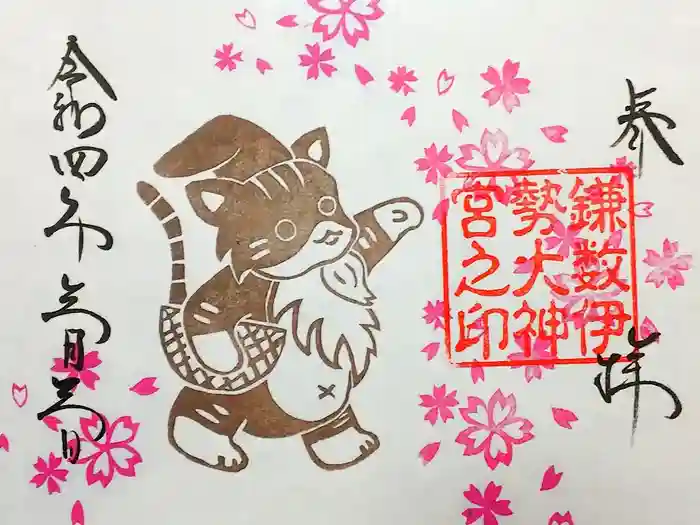 奉拝
鎌数伊
勢大神
宮之印
令和四年三月三日